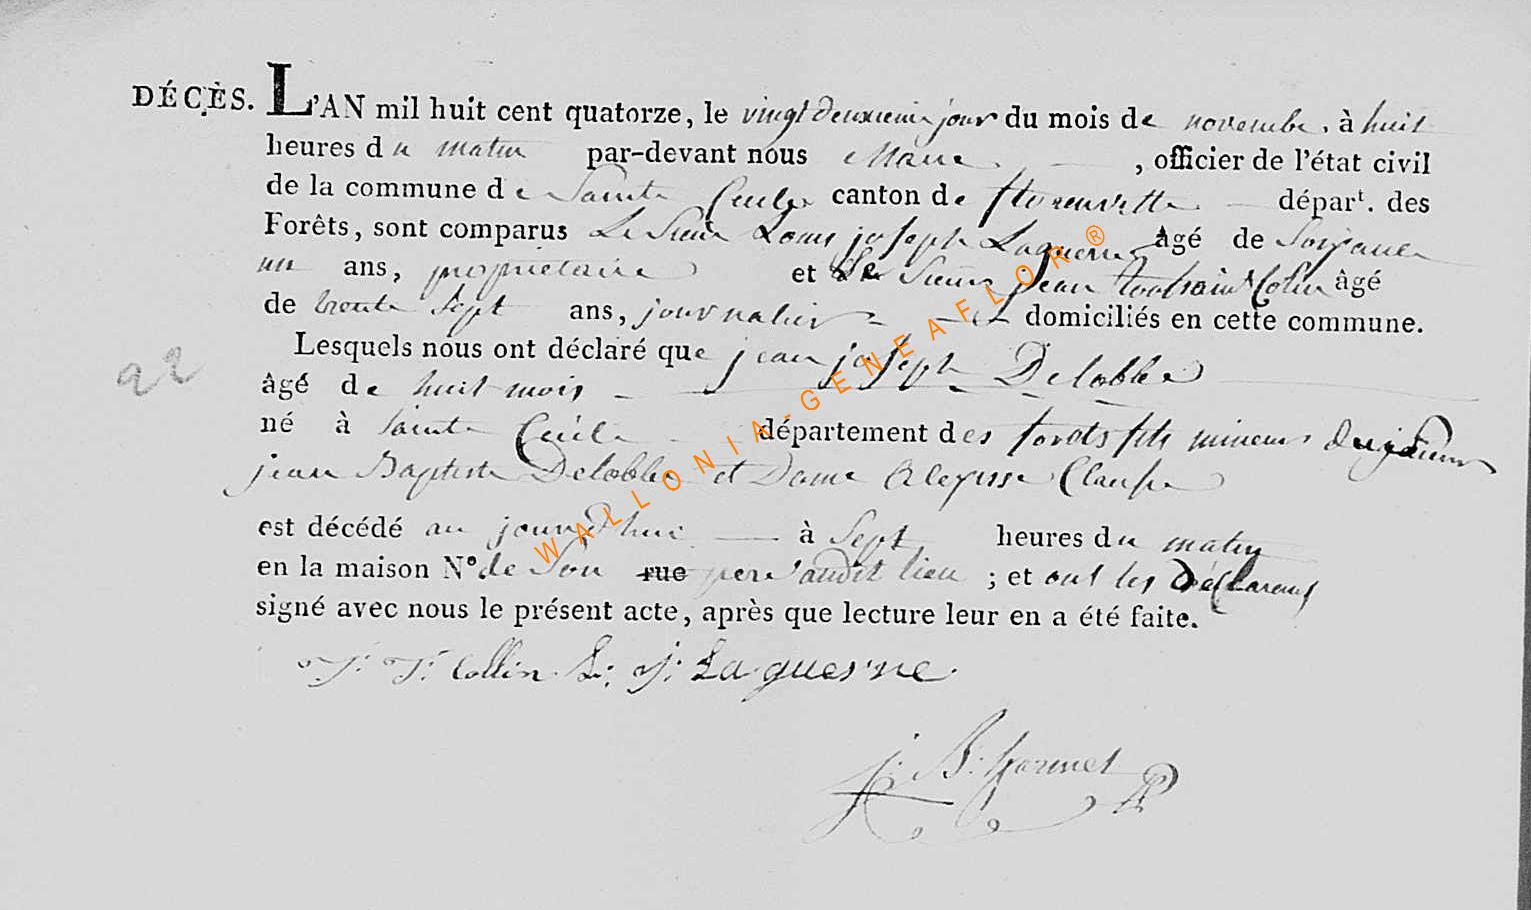 DÉCÈS. L'AN mil huit cent quatorze, le vingt deuxieme jour du mois de novembre, à huit
heures du matin par-devant nous Maire, officier de l'état civil
de la commune de Sainte Cecile canton de florenville départ. des
Forêts, sont comparus Le Sieur Louis joseph Laguerne âgé de Soixante
un ans, proprietaire et Le Sieur jean toussaint Colin âgé
de trente Sept ans, journalier domiciliés en cette commune.
Lesquels nous ont déclaré que jean joseph Delobbe
92
âgé de huit mois
né à Sainte Cecile département des forets fils mineur du Sieur
jean Baptiste Delobbe et Dame
est décédé au jourd'hui à Sept heures du matin
en la maison N° de Son rue pere audit lieu ; et ont les Declarans
signé avec nous le présent acte, après que lecture leur en a été faite.
J: T: Collin L: J: Laguerne
J: B: hormet
WALLONIA-GENEAFLOR ®